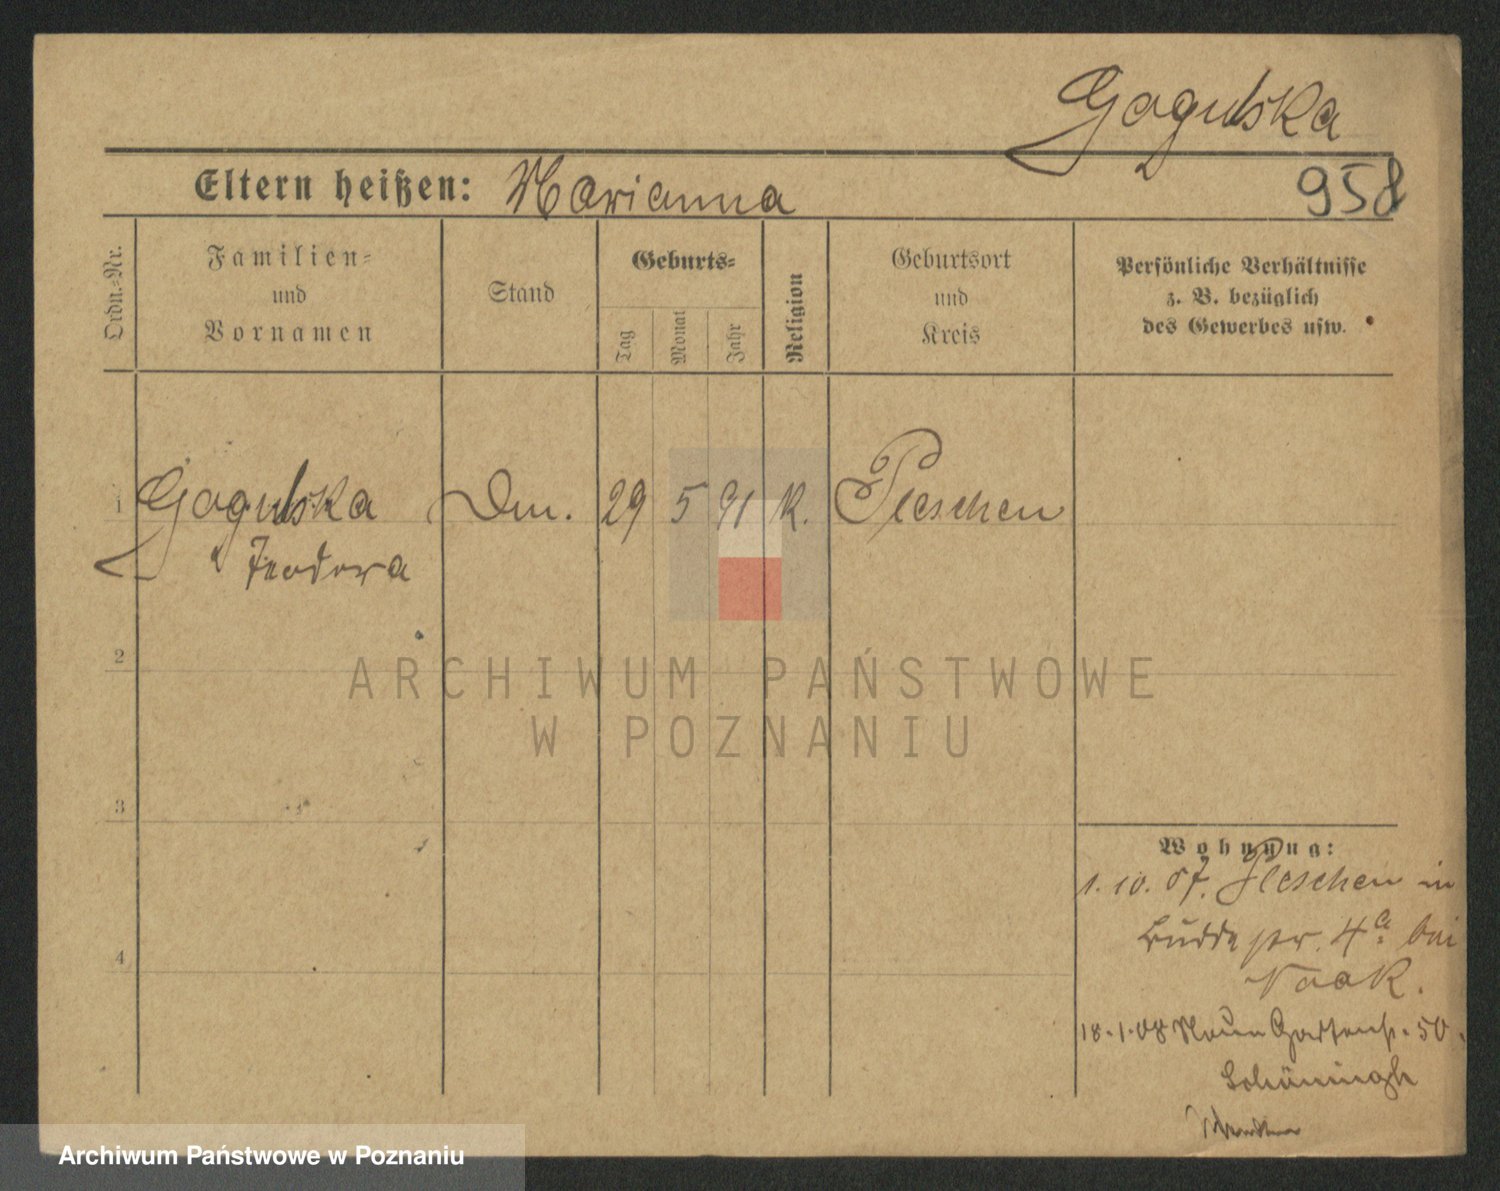 Gogulska
Eltern heißen: Marianna
958
Ordn.-Nr.
Familien-
und
Vornamen
Stand
Geburts-
Tag
Monat
Jahr
Religion
Geburtsort
und
Kreis
Persönliche Verhältnisse
z. B. bezüglich
des Gewerbes usw.
1 Gogulska Dm. 29 5 91 k. Pleschen
Teodora
2
ARCHIWUM PAŃSTWOWE
W POZNANIU
3
Wohnung:
1. 10. 07. Pleschen in
4ª bei
Noak.
4
18.1.08 Neue Gartenstr. 50.
Archiwum Państwowe w Poznaniu